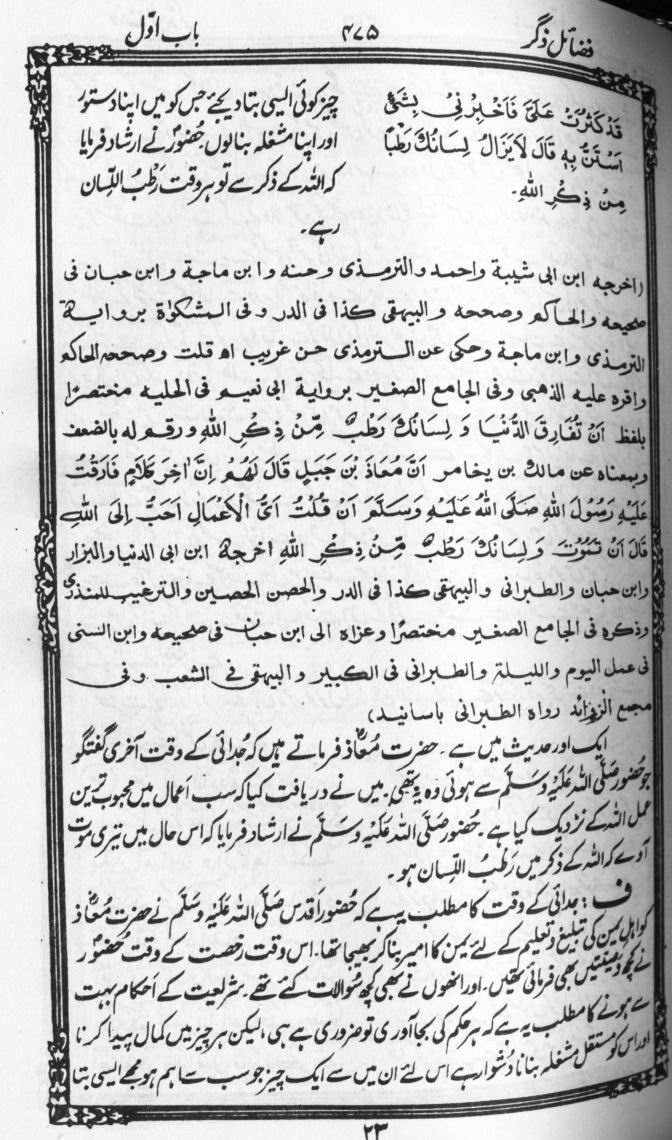 فضائل ذکر
۴۷۵
باب اوّل
قَدْ كَثُرَتْ عَلَيَّ فَاَخْبِرْنِيْ بِشَيْءٍ
اَسْتَنُّ بِهٖ قَالَ لَايَزَالُ لِسَانُكَ رَطْبًا
مِنْ ذِكْرِ اللّٰهِ۔
چیز کوئی ایسی بتا دیجئے جس کو میں اپنا دستور
اور اپنا مشغلہ بنا لوں. حضورؐ نے ارشاد فرمایا
کہ اللہ کے ذکر سے تو ہر وقت رَطْبُ اللّسان
رہے۔
(اخرجه ابن ابی شیبة واحمد والترمذی وحسنه وابن ماجة وابن حبان فی
صحیحه والحاکم وصححه والبیهقی کذا فی الدر وفی المشکوٰة بروایة
الترمذی وابن ماجة وحکی عن الترمذی حسن غریب اھ قلت وصححه الحاکم
واقره علیه الذهبی وفی الجامع الصغیر بروایة ابی نعیم فی الحلیه مختصرًا
بلفظ اَنْ تُفَارِقَ الدُّنْيَا وَ لِسَانُكَ رَطْبٌ مِّنْ ذِكْرِ اللّٰهِ ورقم له بالضعف
وبمعناه عن مالك بن یخامر اَنَّ مُعَاذَ بْنَ جَبَلٍ قَالَ لَهُمْ اِنَّ اٰخِرَ كَلَامٍ فَارَقْتُ
عَلَيْهِ رَسُوْلَ اللّٰهِ صَلَّى اللّٰهُ عَلَيْهِ وَسَلَّمَ اَنْ قُلْتُ اَيُّ الْاَعْمَالِ اَحَبُّ اِلَى اللّٰهِ
قَالَ اَنْ تَمُوْتَ وَلِسَانُكَ رَطْبٌ مِّنْ ذِكْرِ اللّٰهِ اخرجه ابن ابی الدنیا والبزار
وابن حبان والطبرانی والبیهقی کذا فی الدر والحصن الحصین والترغیب للمنذری
وذکره فی الجامع الصغیر مختصرًا وعزاه الی ابن حبان فی صحیحه وابن السنی
فی عمل الیوم واللیلة والطبرانی فی الکبیر والبیهقی فی الشعب وفی
مجمع الزوائد رواه الطبرانی باسانید)
ایک اور حدیث میں ہے۔ حضرت مُعاذؓ فرماتے ہیں کہ جُدائی کے وقت آخری گفتگو
جو حُضور صَلَّی اللہ عَلَیْہِ وَسَلَّم سے ہوئی وہ یہ تھی. میں نے دریافت کیا کہ سب اَعمال میں محبوب ترین
عمل اللہ کے نزدیک کیا ہے۔ حُضور صَلَّی اللہ عَلَیْہِ وَسَلَّم نے ارشاد فرمایا کہ اس حال میں تیری موت
آوے کہ اللہ کے ذکر میں رَطبُ اللّسان ہو۔
ف : جدائی کے وقت کا مطلب یہ ہے کہ حُضور اَقدس صَلَّی اللہ عَلَیْہِ وَسَلَّم نے حضرت مُعاذؓ
کو اہلِ یمن کی تبلیغ و تعلیم کے لئے یمن کا امیر بنا کر بھیجا تھا. اس وقت رخصت کے وقت حُضورؐ
نے کچھ وصیتیں بھی فرمائی تھیں. اور انھوں نے بھی کچھ سُوالات کئے تھے۔ شریعت کے اَحکام بہت
سے ہونے کا مطلب یہ ہے کہ ہر حکم کی بجا آوری تو ضروری ہے ہی، لیکن ہر چیز میں کمال پیدا کرنا
اور اس کو مستقل مشغلہ بنانا دُشوار ہے اس لئے ان میں سے ایک چیز جو سب سے اہم ہو مجھے ایسی بتا
۲۳